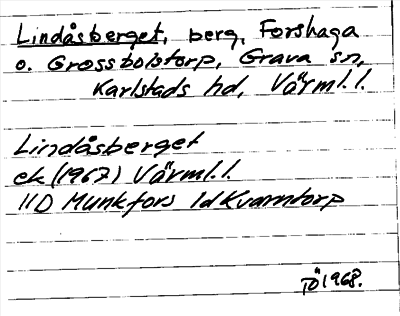 Lindåsberget, berg, Forshaga
o. Grossbolstorp, Grava sn,
Karlstads hd, Värml.l.
Lindåsberget
ek (1967) Värml.l.
11D Munkfors 1d Kvarntorp
TÖ 1968.